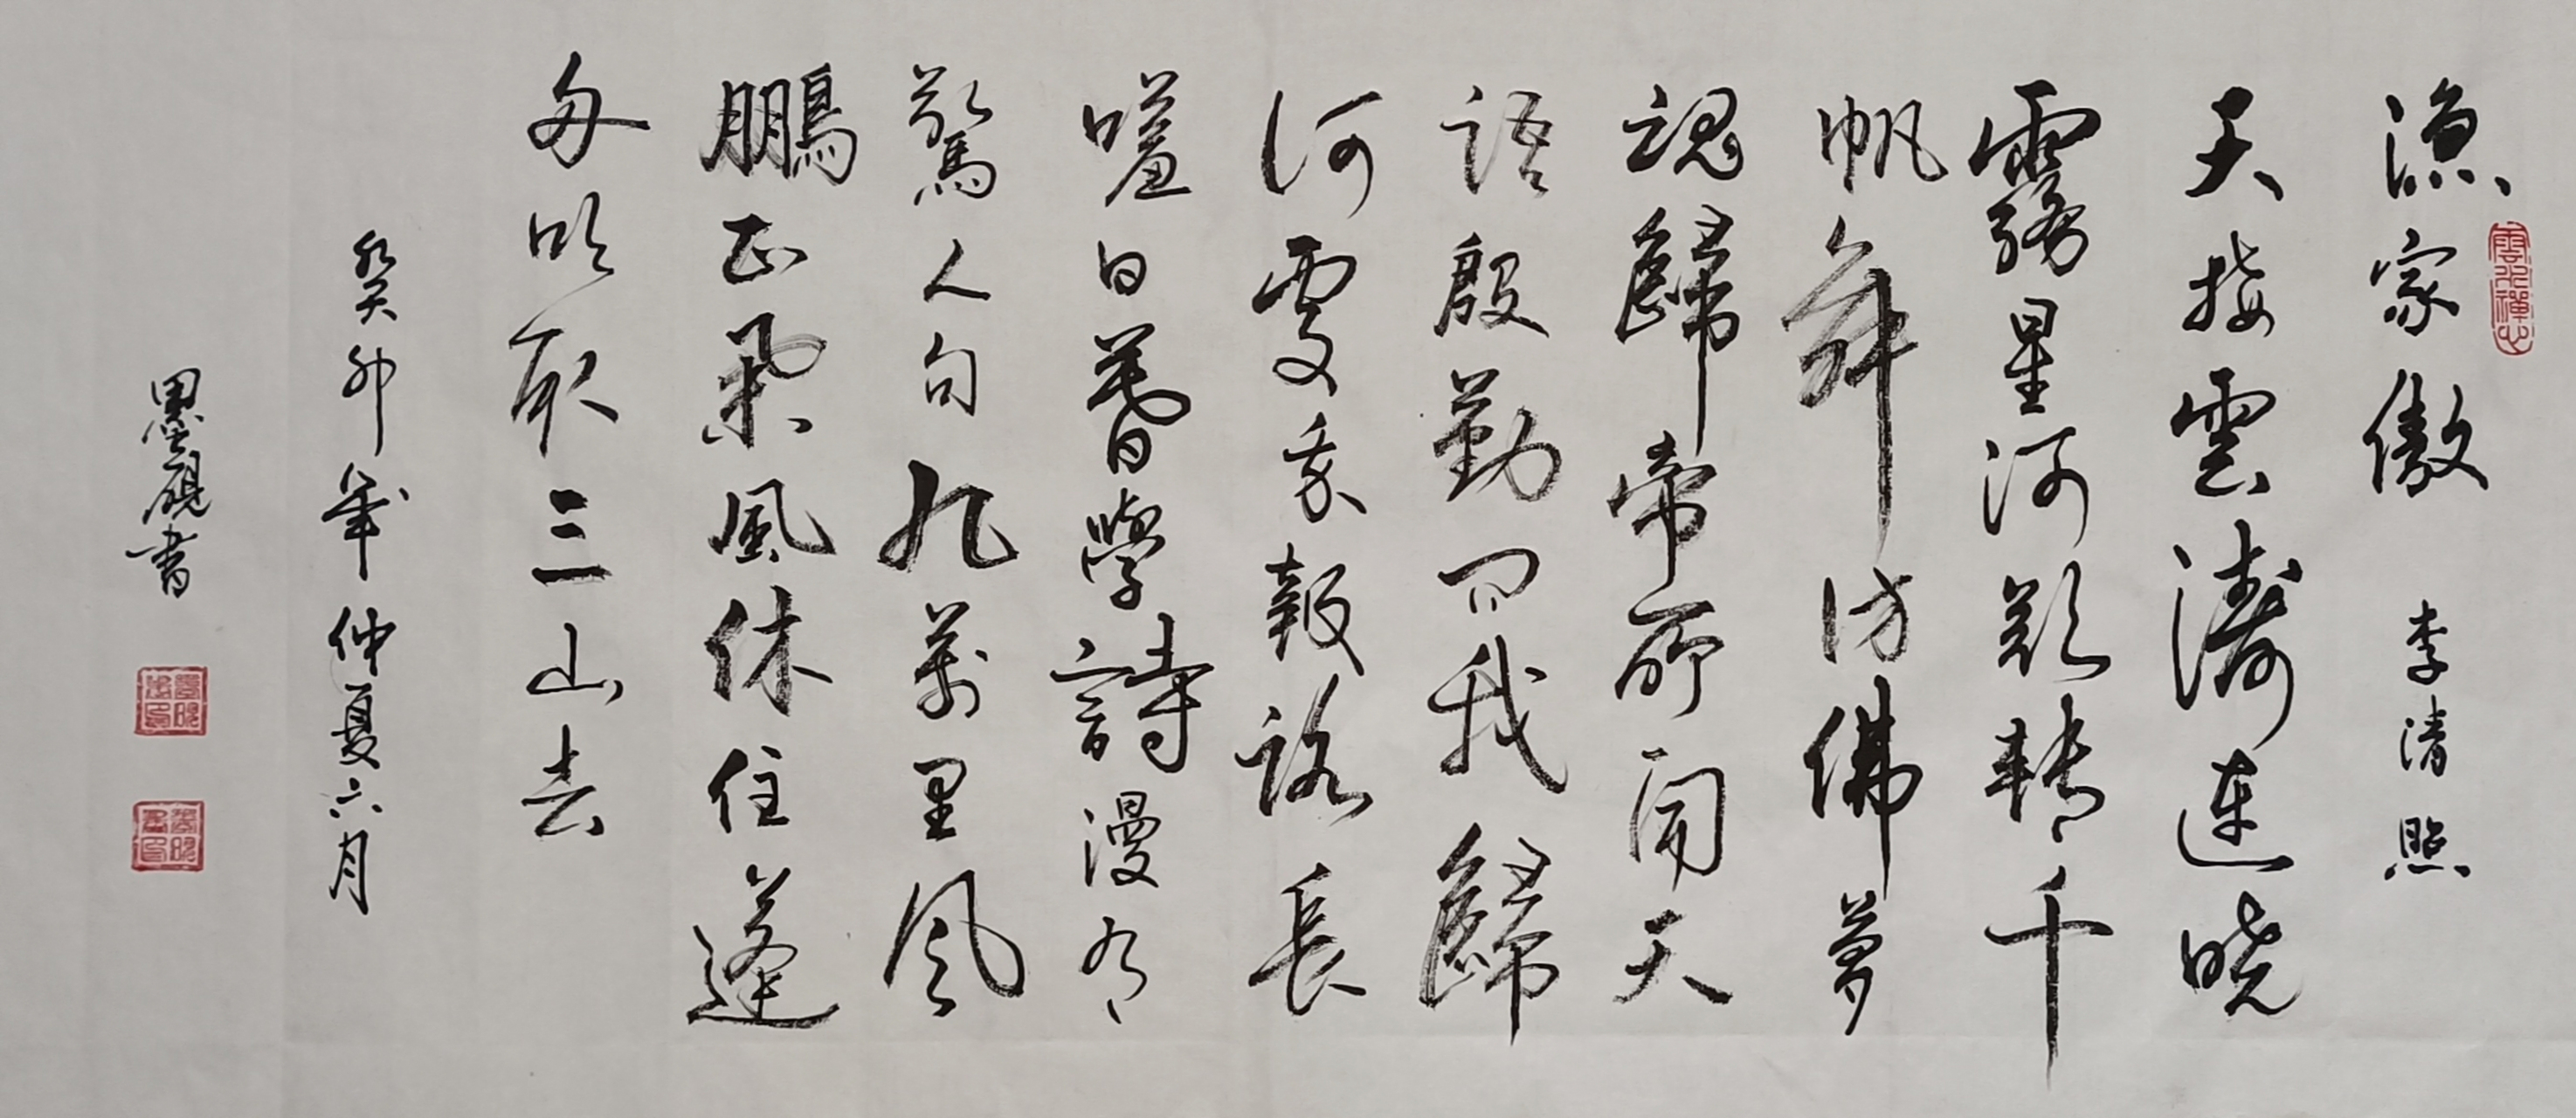 漁家傲 李清照
雲水禪心
天接雲濤連晓
霧星河欲轉千
帆舞仿佛夢
魂歸帝所聞天
語殷勤問我歸
何處我報路長
嗟日暮學詩漫有
驚人句九萬里風
鵬正舉風休住蓬
舟吹取三山去
癸卯年仲夏六月
墨硯書